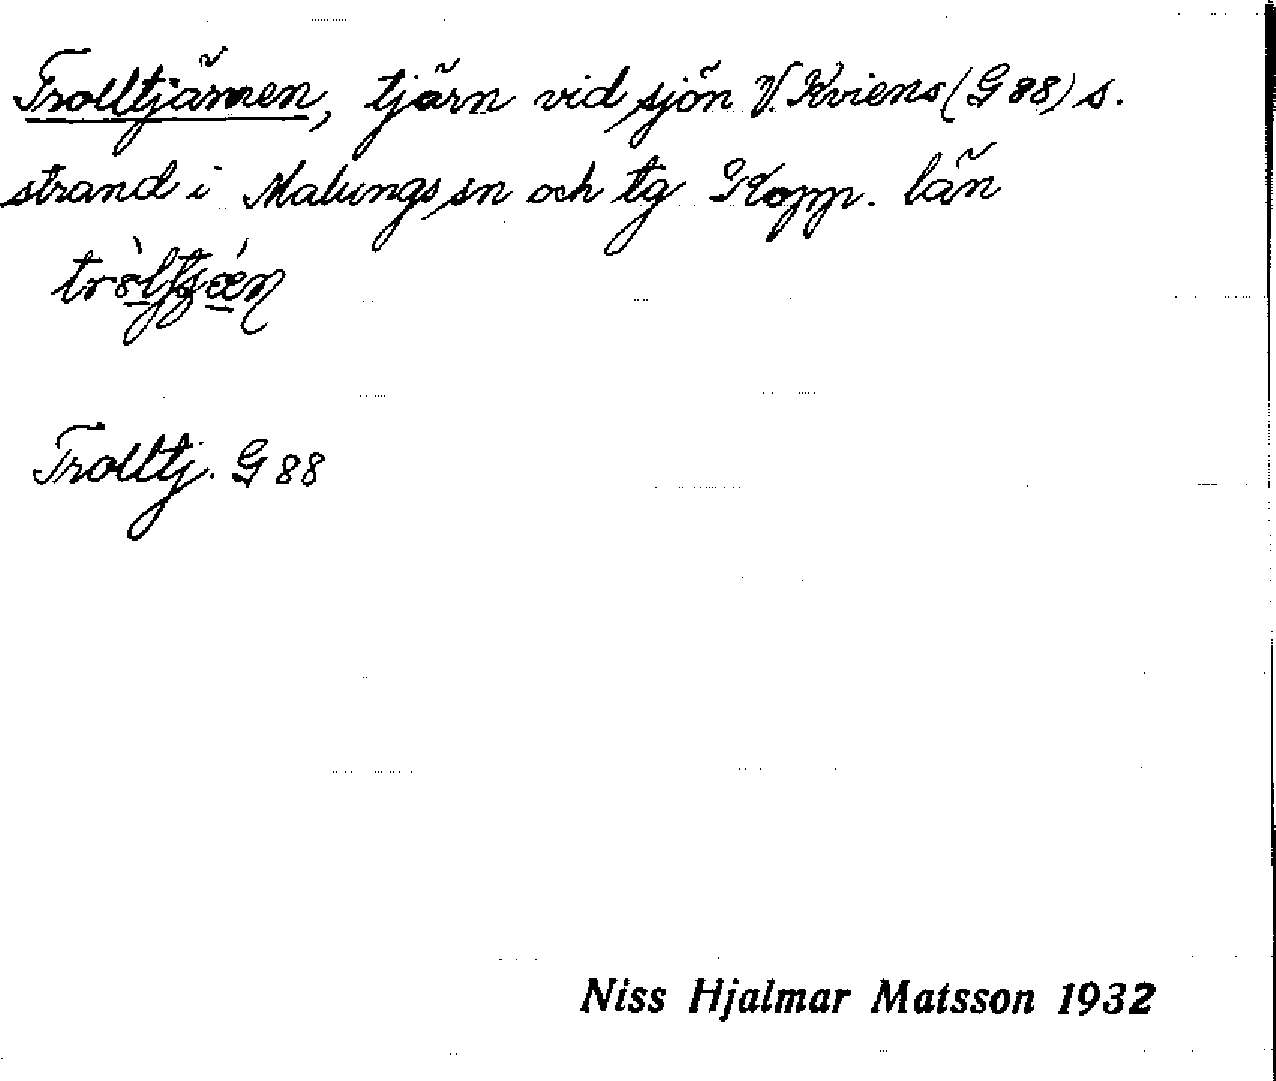 Trolltjärnen, tjärn vid sjön V. Kviens (G 88) s.
strand i Malungs sn och tg Kopp. län
Trolltj. G 88
Niss Hjalmar Matsson 1932